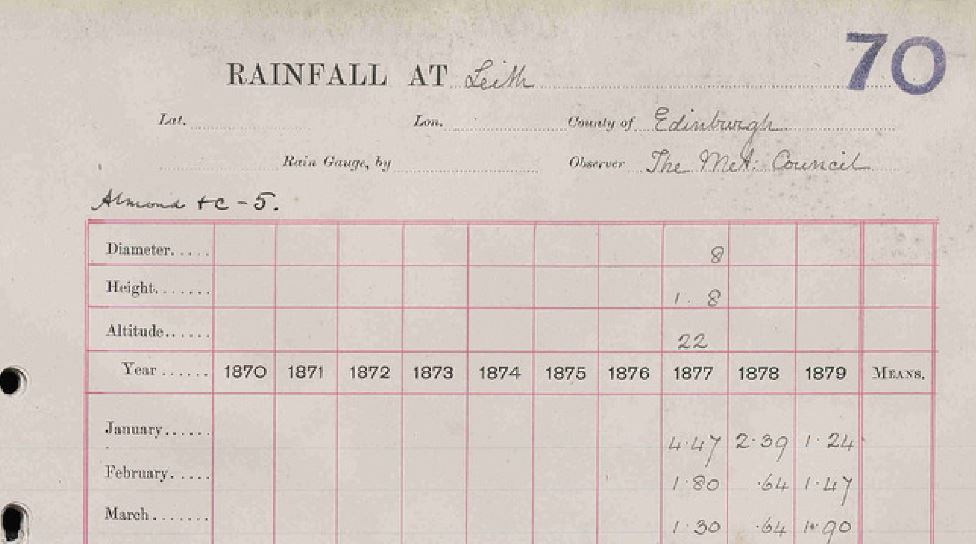 70
RAINFALL AT Leith
Lat. Lon. County of Edinburgh
Rain Gauge, by Observer The Met. Council
Almond &c - 5.
Diameter..... 8
Height....... 1. 8
Altitude...... 22
Year ...... 1870 1871 1872 1873 1874 1875 1876 1877 1878 1879 MEANS.
January...... 4.47 2.39 1.24
February..... 1.80 .64 1.47
March ....... 1.30 .64 .90